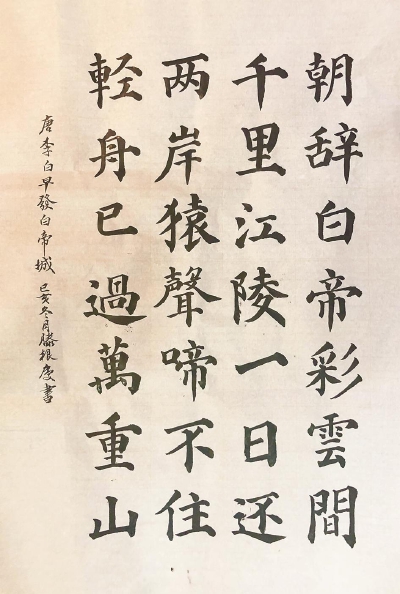 朝辞白帝彩雲間
千里江陵一日还
两岸猿聲啼不住
軽舟已過萬重山
唐李白早發白帝城 已亥冬月滕根慶書